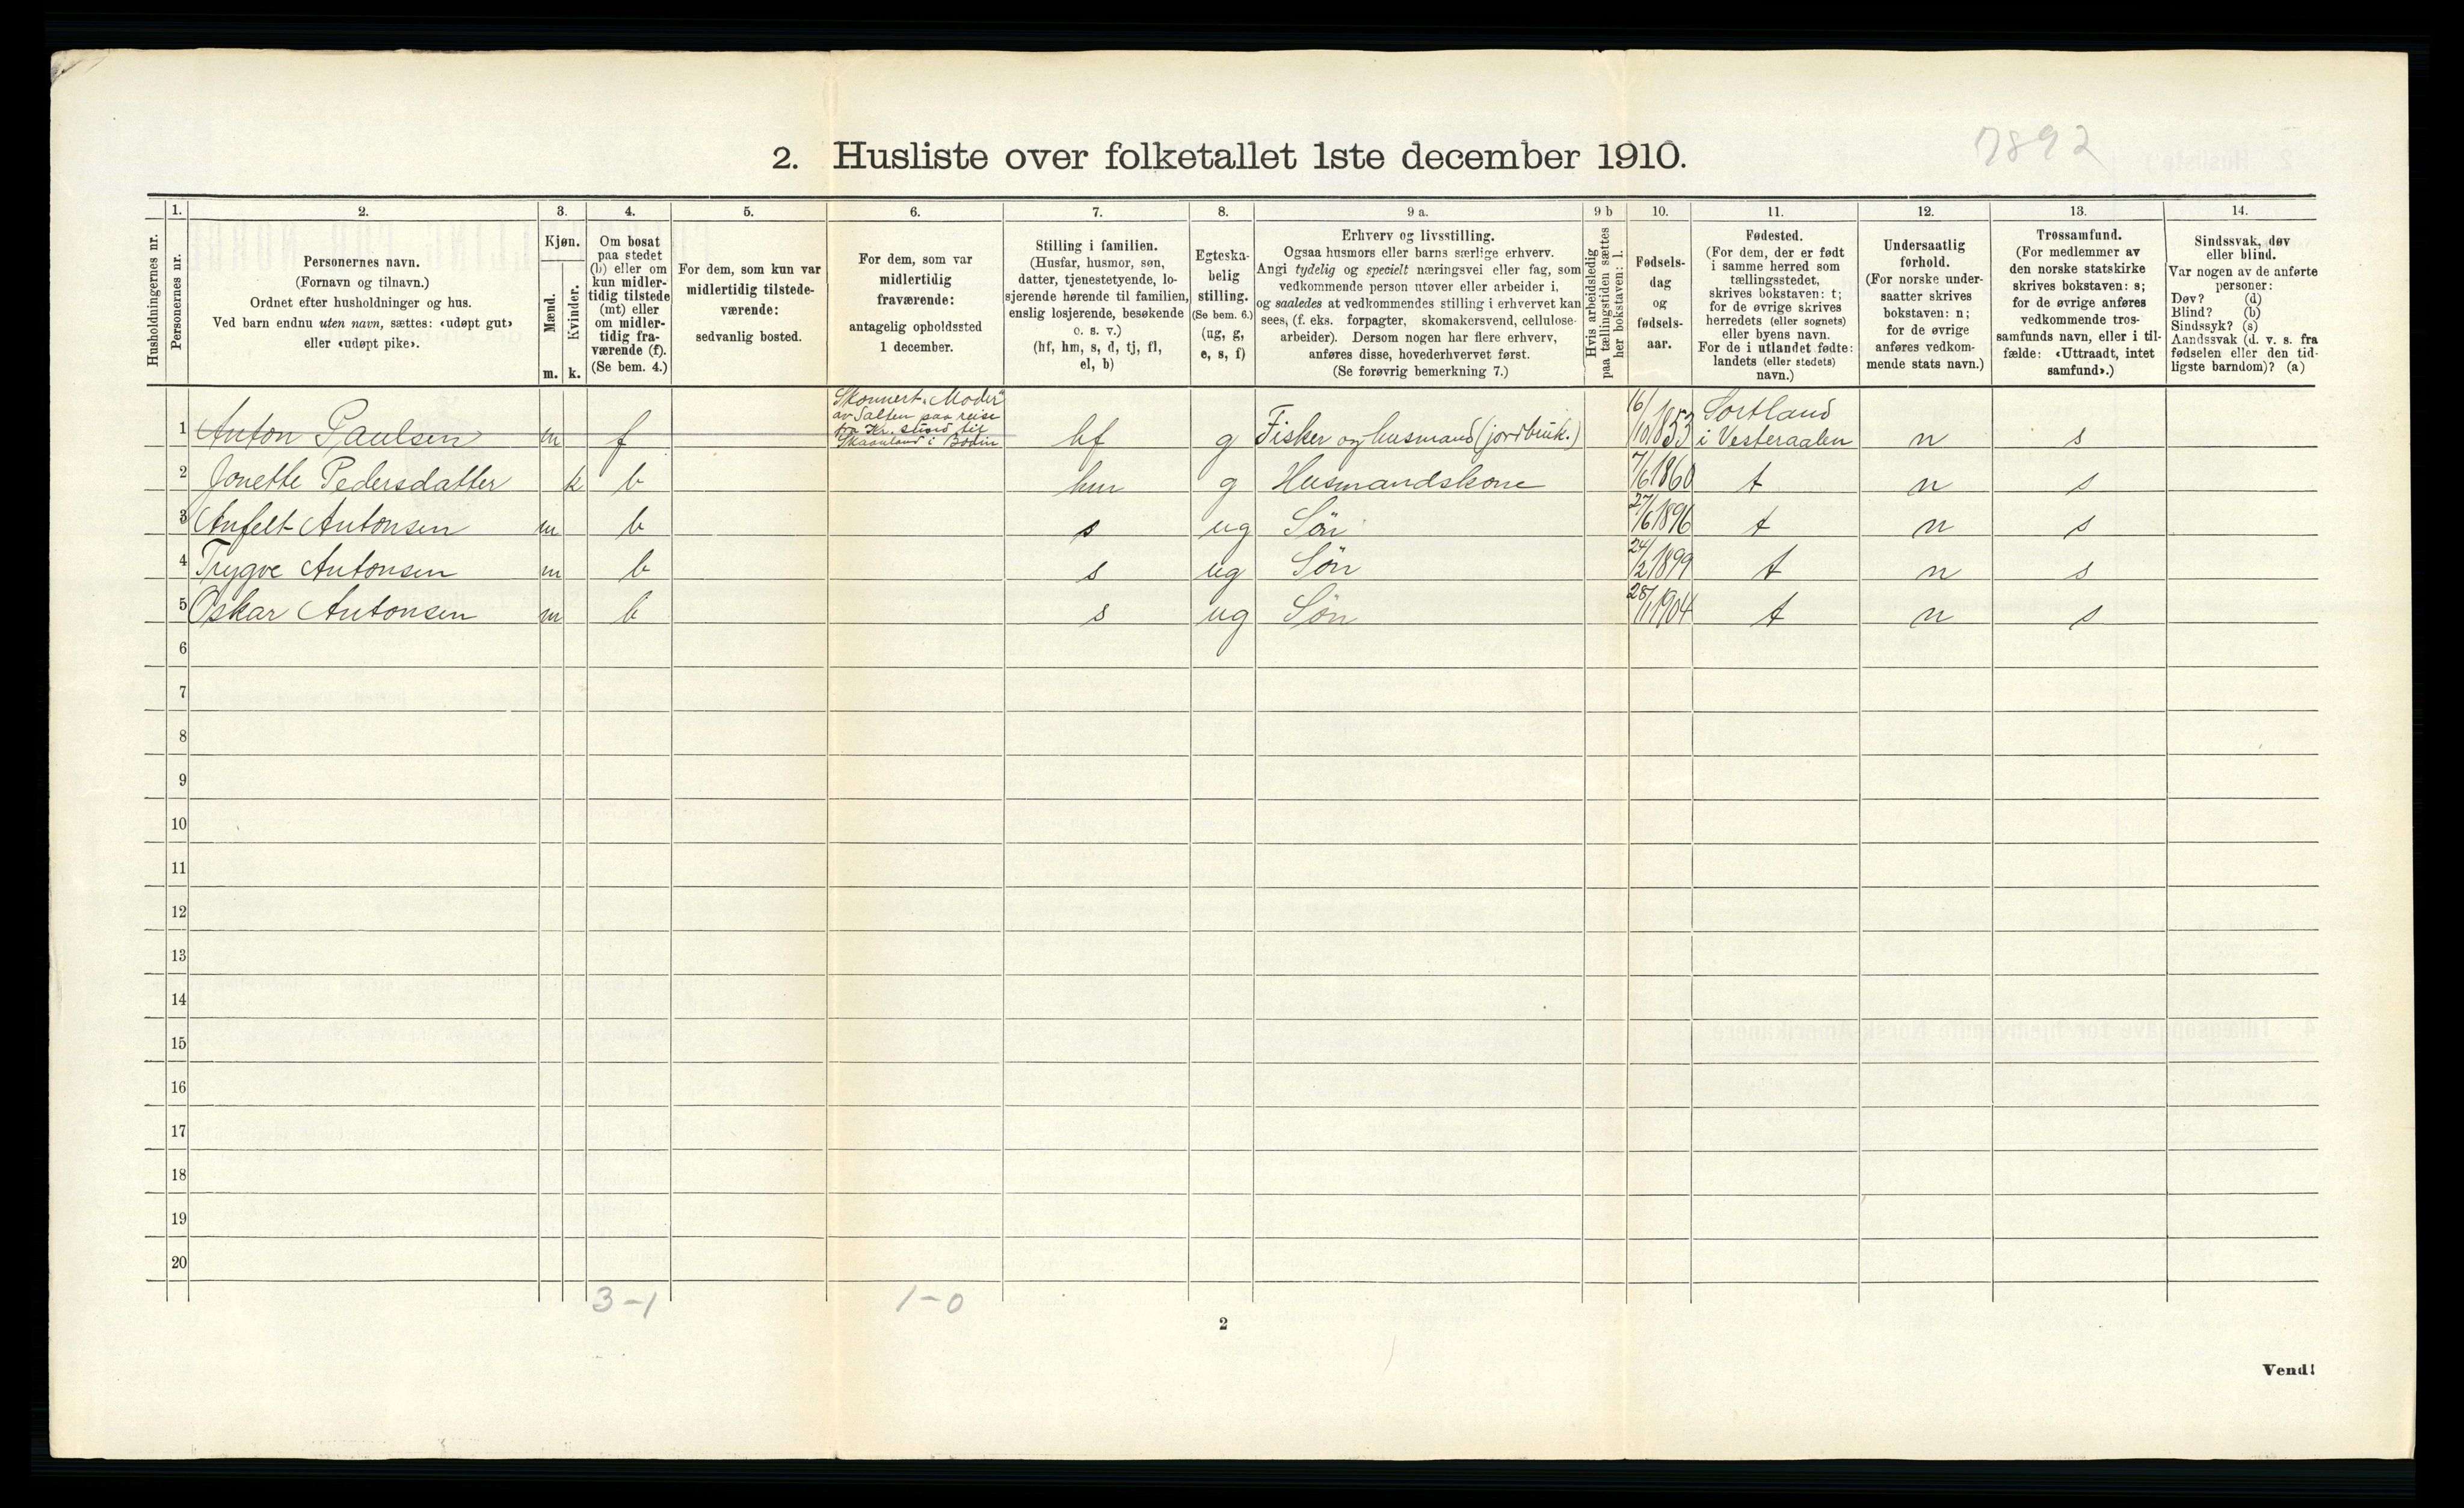 7892
2. Husliste over folketallet 1ste december 1910.
Husholdningernes nr.
1.
Personernes nr.
2.
Personernes navn.
(Fornavn og tilnavn.)
Ordnet efter husholdninger og hus.
Ved barn endnu uten navn, sættes: «udøpt gut»
eller «udøpt pike».
3.
Kjøn.
Mænd.
Kvinder.
m. k.
4.
Om bosat
paa stedet
(b) eller om
kun midler-
tidig tilstede
(mt) eller
om midler-
tidig fra-
værende (f).
(Se bem. 4.)
5.
For dem, som kun var
midlertidig tilstede-
værende:
sedvanlig bosted.
6.
For dem, som var
midlertidig
fraværende:
antagelig opholdssted
1 december.
7.
Stilling i familien.
(Husfar, husmor, søn,
datter, tjenestetyende, lo-
sjerende hørende til familien,
enslig losjerende, besøkende
o. s. v.)
(hf, hm, s, d, tj, fl,
el, b)
8.
Egteska-
belig
stilling.
(Se bem. 6.)
(ug, g,
e, s, f)
9 a.
Erhverv og livsstilling.
Ogsaa husmors eller barns særlige erhverv.
Angi tydelig og specielt næringsvei eller fag, som
vedkommende person utøver eller arbeider i,
og saaledes at vedkommendes stilling i erhvervet kan
sees, (f. eks. forpagter, skomakersvend, cellulose-
arbeider). Dersom nogen har flere erhverv,
anføres disse, hovederhvervet først.
(Se forøvrig bemerkning 7.)
9 b
Hvis arbeidsledig
paa tællingstiden sættes
her bokstaven: l.
10.
Fødsels-
dag
og
fødsels-
aar.
11.
Fødested.
(For dem, der er født
i samme herred som
tællingsstedet,
skrives bokstaven: t;
for de øvrige skrives
herredets (eller sognets)
eller byens navn.
For de i utlandet fødte:
landets (eller stedets)
navn.)
12.
Undersaatlig
forhold.
(For norske under-
saatter skrives
bokstaven: n;
for de øvrige
anføres vedkom-
mende stats navn.)
13.
Trossamfund.
(For medlemmer av
den norske statskirke
skrives bokstaven: s;
for de øvrige anføres
vedkommende tros-
samfunds navn, eller i til-
fælde: «Uttraadt, intet
samfund».)
14.
Sindssvak, døv
eller blind.
Var nogen av de anførte
personer:
Døv? (d)
Blind? (b)
Sindssyk? (s)
Aandssvak (d. v. s. fra
fødselen eller den tid-
ligste barndom)? (a)
Skonnert "Moder"
av Salten paa reise
fra Kr. sund til
Skaanland i Bodin
1 Anton Paulsen m f hf g Fisker og husmand (jordbruk.) 16/10 1853 Sortland
i Vesteraalen n s
2 Jonette Pedersdatter k b hm g Husmandskone 7/6 1860 t n s
3 Anfelt Antonsen m b s ug Søn 27/6 1896 t n s
4 Trygve Antonsen m b s ug Søn 24/2 1899 t n s
5 Oskar Antonsen m b s ug Søn 28/1 1904 t n s
6
7
8
9
10
11
12
13
14
15
16
17
18
19
20
3-1 1-0
2
Vend!